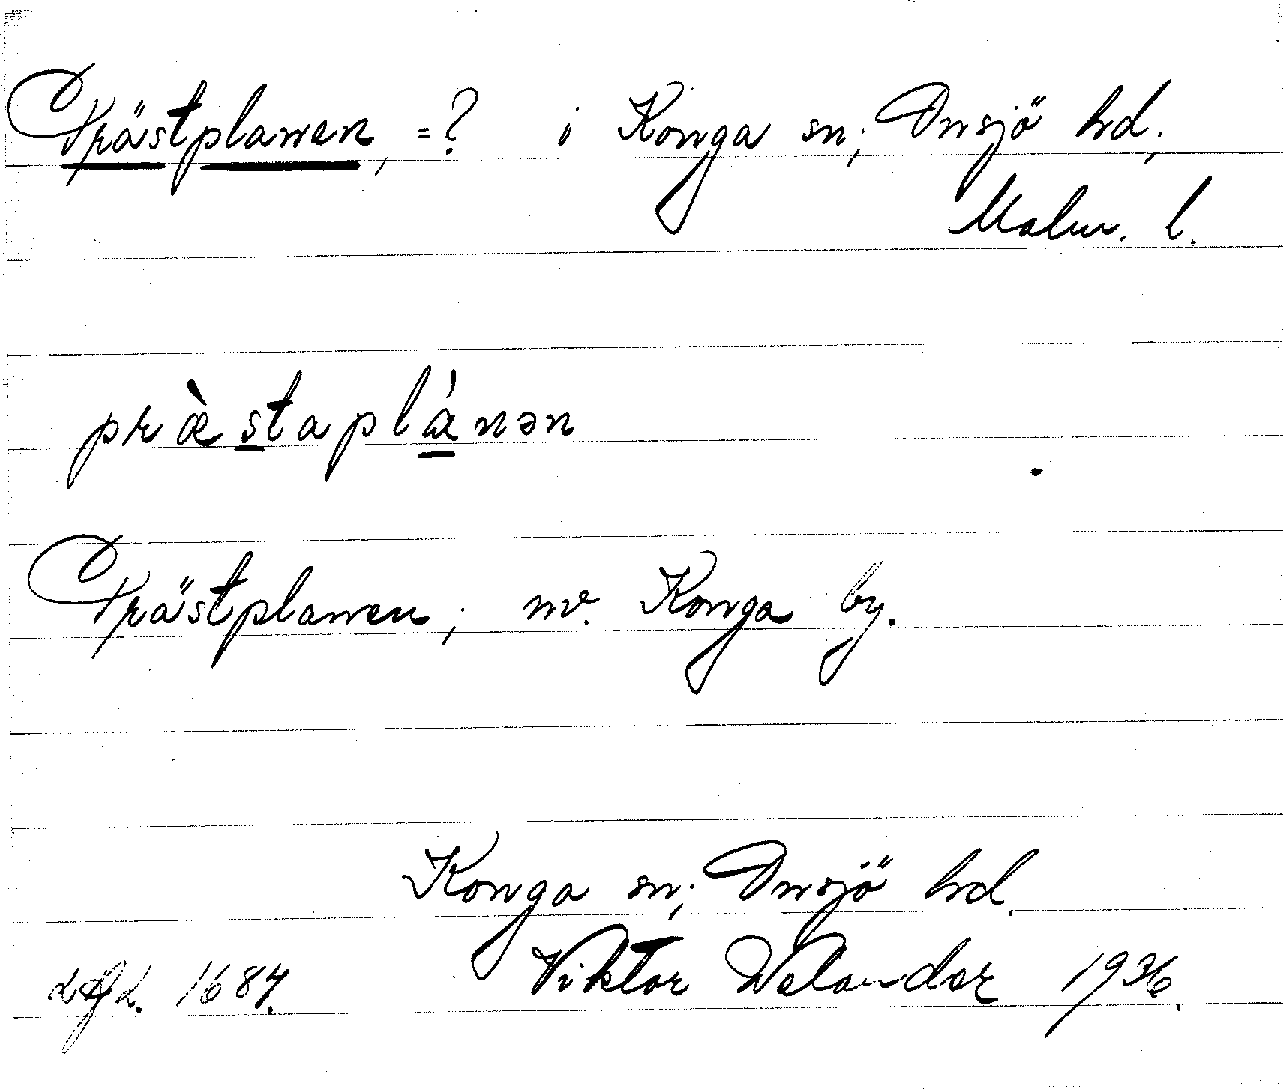 Prästplanen, =? i Konga sn; Onsjö hd;
Malm. l.
præ̀staplánən
Prästplanen; nv. Konga by.
Konga sn; Onsjö hd.
Viktor Welander 1936.
1684.